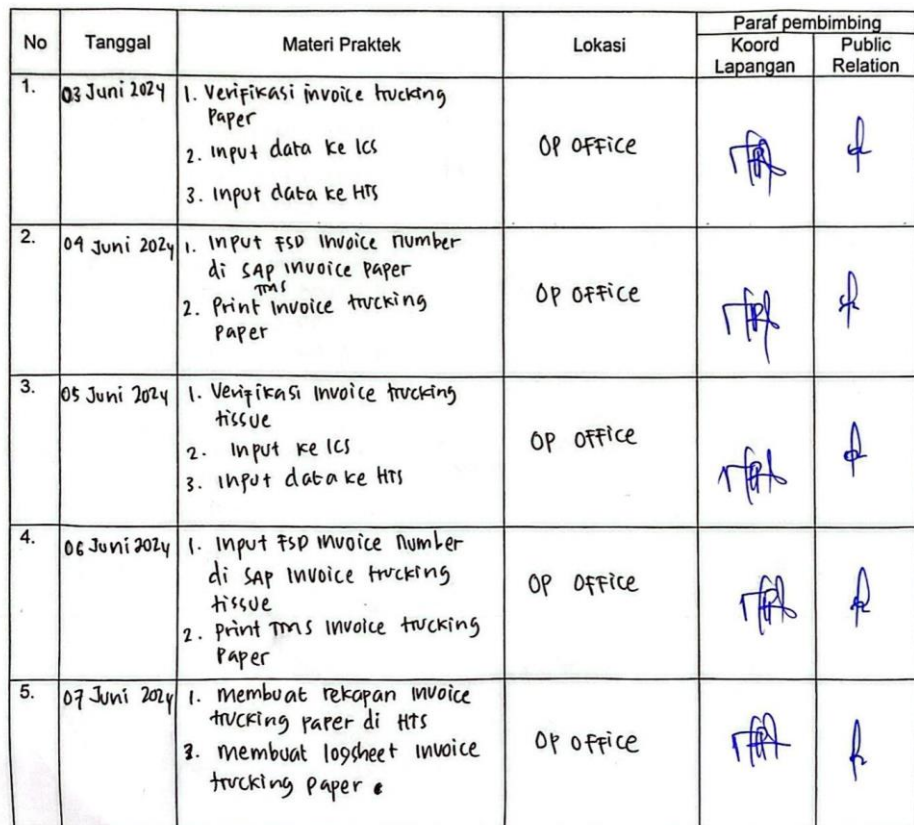 No Tanggal Materi Praktek Lokasi Paraf pembimbing
Koord Lapangan Public Relation
1. 03 Juni 2024 1. Verifikasi invoice trucking
Paper
2. Input data ke ICS
3. Input data ke HTS
OP OFFice
2. 04 Juni 2024 1. Input FSD Invoice number
di SAP invoice Paper
TMS
2. Print Invoice trucking
Paper
OP OFFice
3. 05 Juni 2024 1. Verifikasi Invoice trucking
tissue
2. Input ke ICS
3. Input data ke HTS
OP OFFice
4. 06 Juni 2024 1. Input FSD Invoice Number
di SAP Invoice trucking
tissue
2. Print TMS Invoice trucking
Paper
OP OFFice
5. 07 Juni 2024 1. Membuat rekapan Invoice
trucking paper di HTS
2. Membuat logsheet Invoice
trucking Paper
OP OFFice